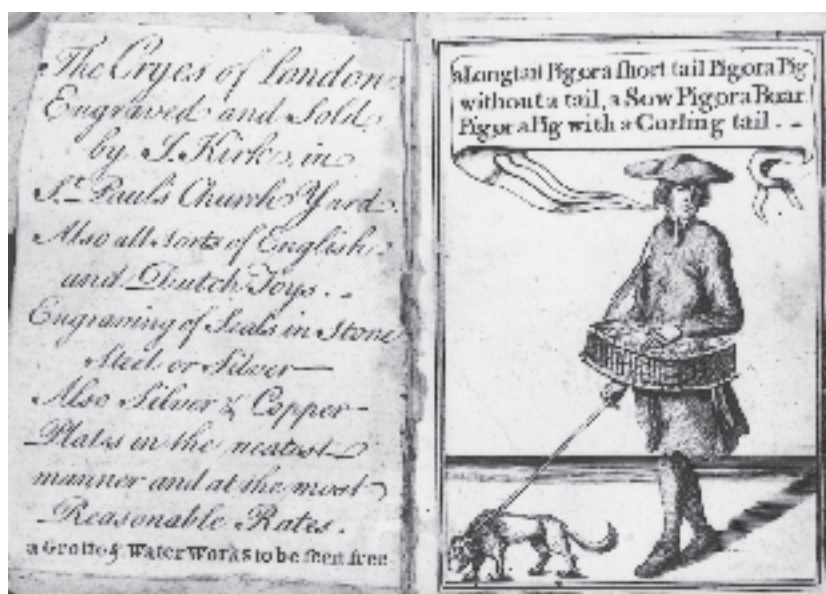 The Cryes of London
Engraved and Sold
by J. Kirk, in
St. Paul's Church Yard.
Also all sorts of English
and Dutch Toys.
Engraving of Seals in Stone
Steel or Silver
Also Silver & Copper
Plates in the neatest
manner and at the most
Reasonable Rates.
a Grotto & Water Works to be seen free
a Long tail Pig or a short tail Pig or a Pig
without a tail, a Sow Pig or a Boar
Pig or a Pig with a Curling tail